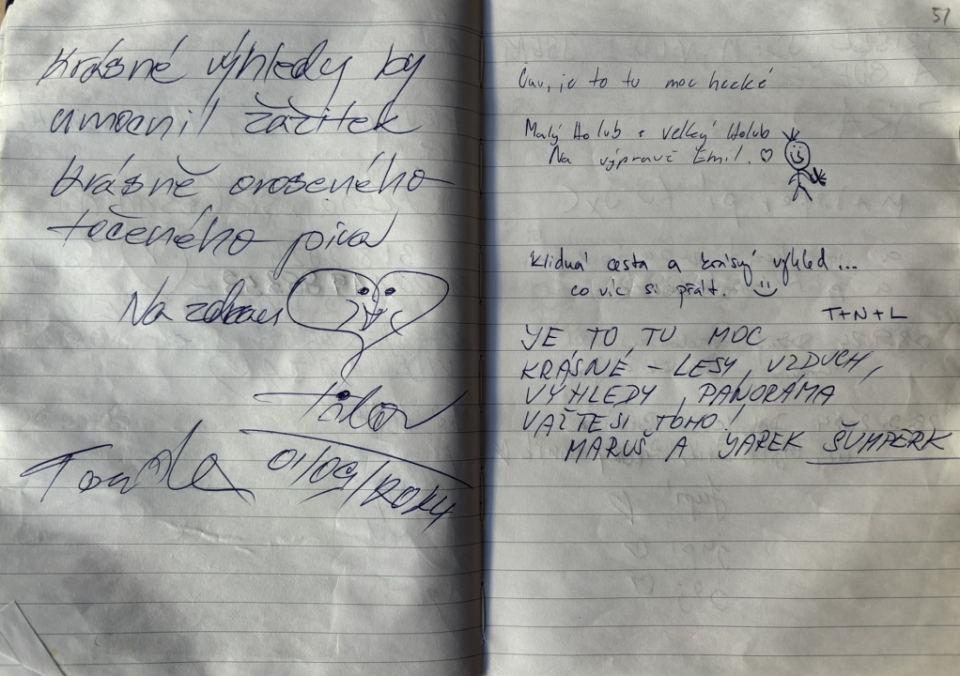 Krásné výhledy by
umocnil zážitek
krásně oroseného
točeného piva
Na zdraví
01/09/2024
51
Čau, je to tu moc hecké
Malý Holub a velký Holub
Na výpravě Emil. ♡
Klidná cesta a krásný výhled...
co víc si přát. :)
T+N+L
JE TO TU MOC
KRÁSNÉ - LESY, VZDUCH,
VÝHLEDY, PANORÁMA
VAŽTE SI TOHO!
MARUŠ A JAREK ŠUMPERK